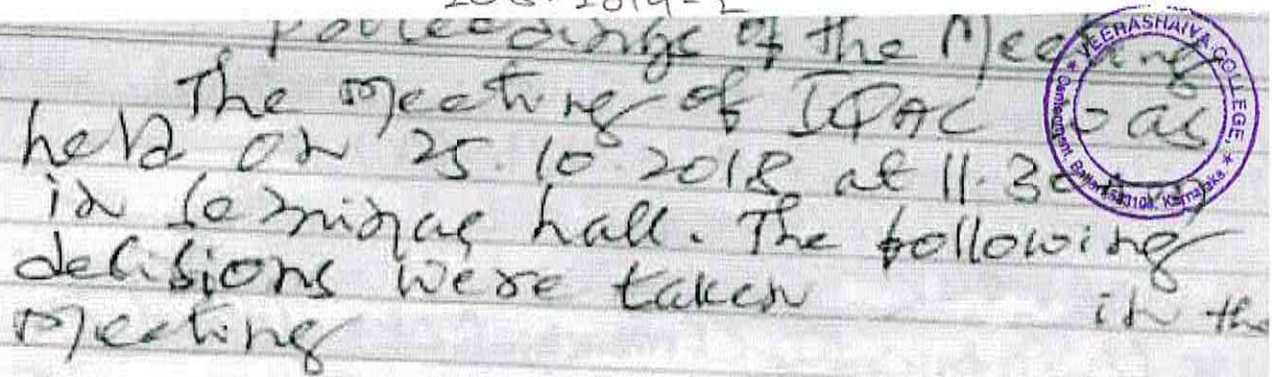 Proceedings of the Meeting
The meeting of IQAC was
held on 25.10.2018 at 11.30
in seminar hall. The following
decisions were taken in the
meeting
VEERASHAIVA COLLEGE,
Cantonment, Ballari-583104. Karnataka.